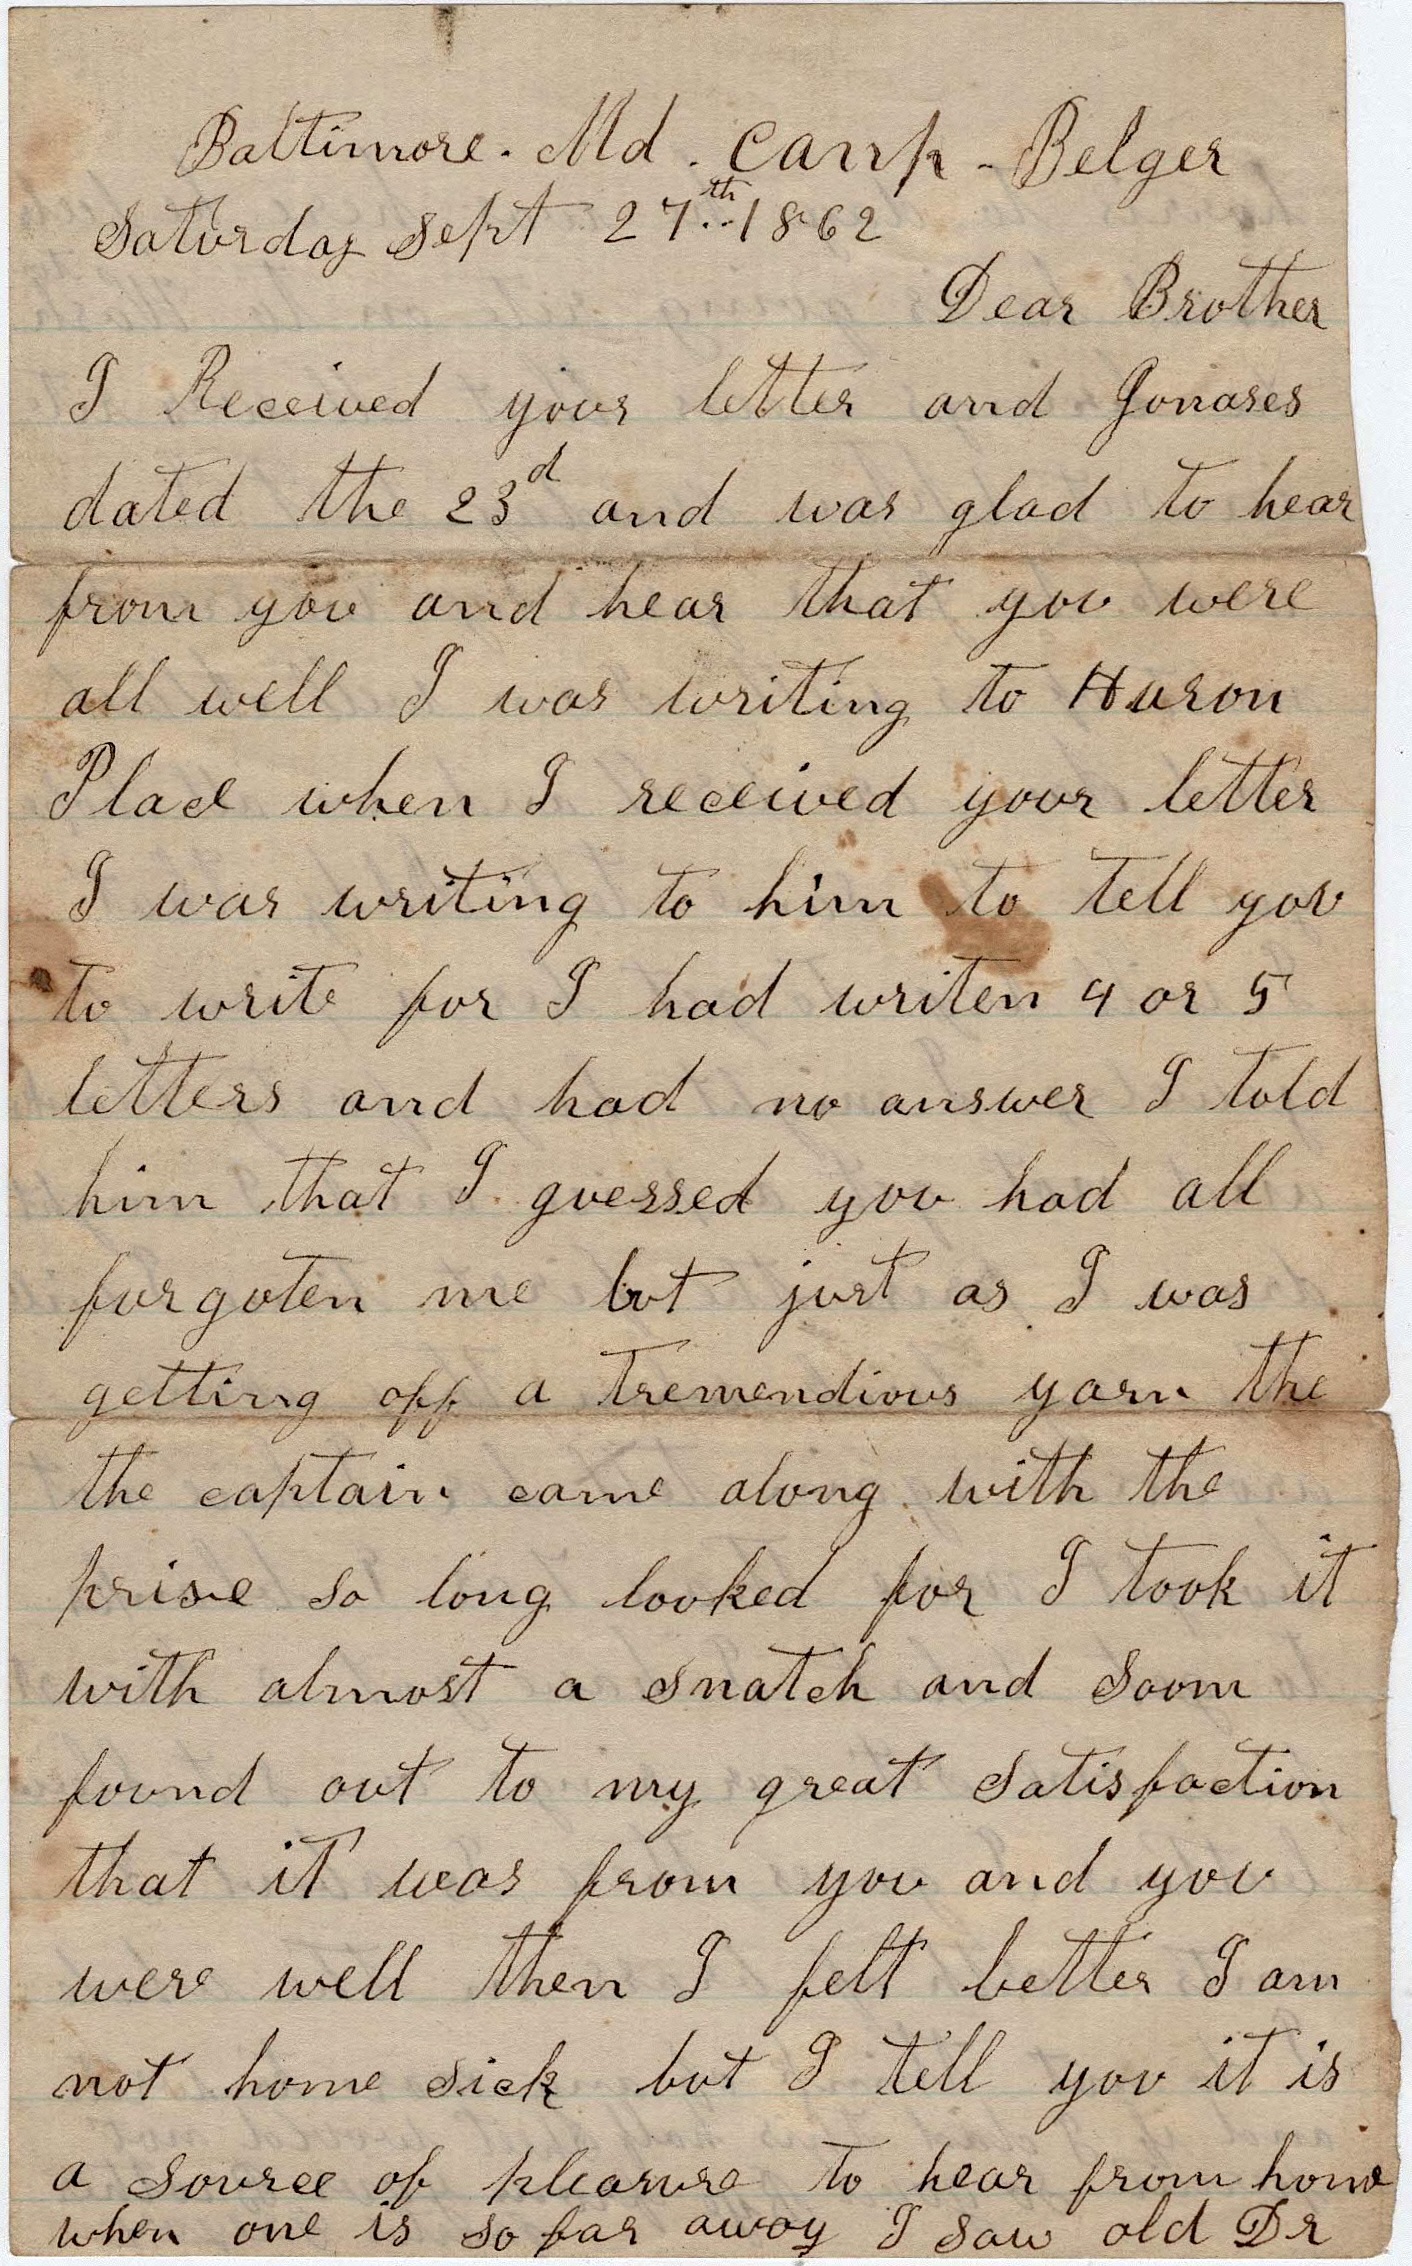 Baltimore. Md. Camp - Belger
Saturday Sept 27th 1862
Dear Brother
I Received your letter and Jonases
dated the 23d and was glad to hear
from you and hear that you were
all well I was writing to Huron
Place when I received your letter
I was writing to him to tell you
to write for I had writen 4 or 5
letters and had no answer I told
him that I guessed you had all
forgoten me but just as I was
getting off a tremendious yarn the
the captain came along with the
prise so long looked for I took it
with almost a snatch and soom
found out to my great satisfaction
that it was from you and you
were well then I felt better I am
not home sick but I tell you it is
a source of pleasure to hear from home
when one is so far away I saw old Dr